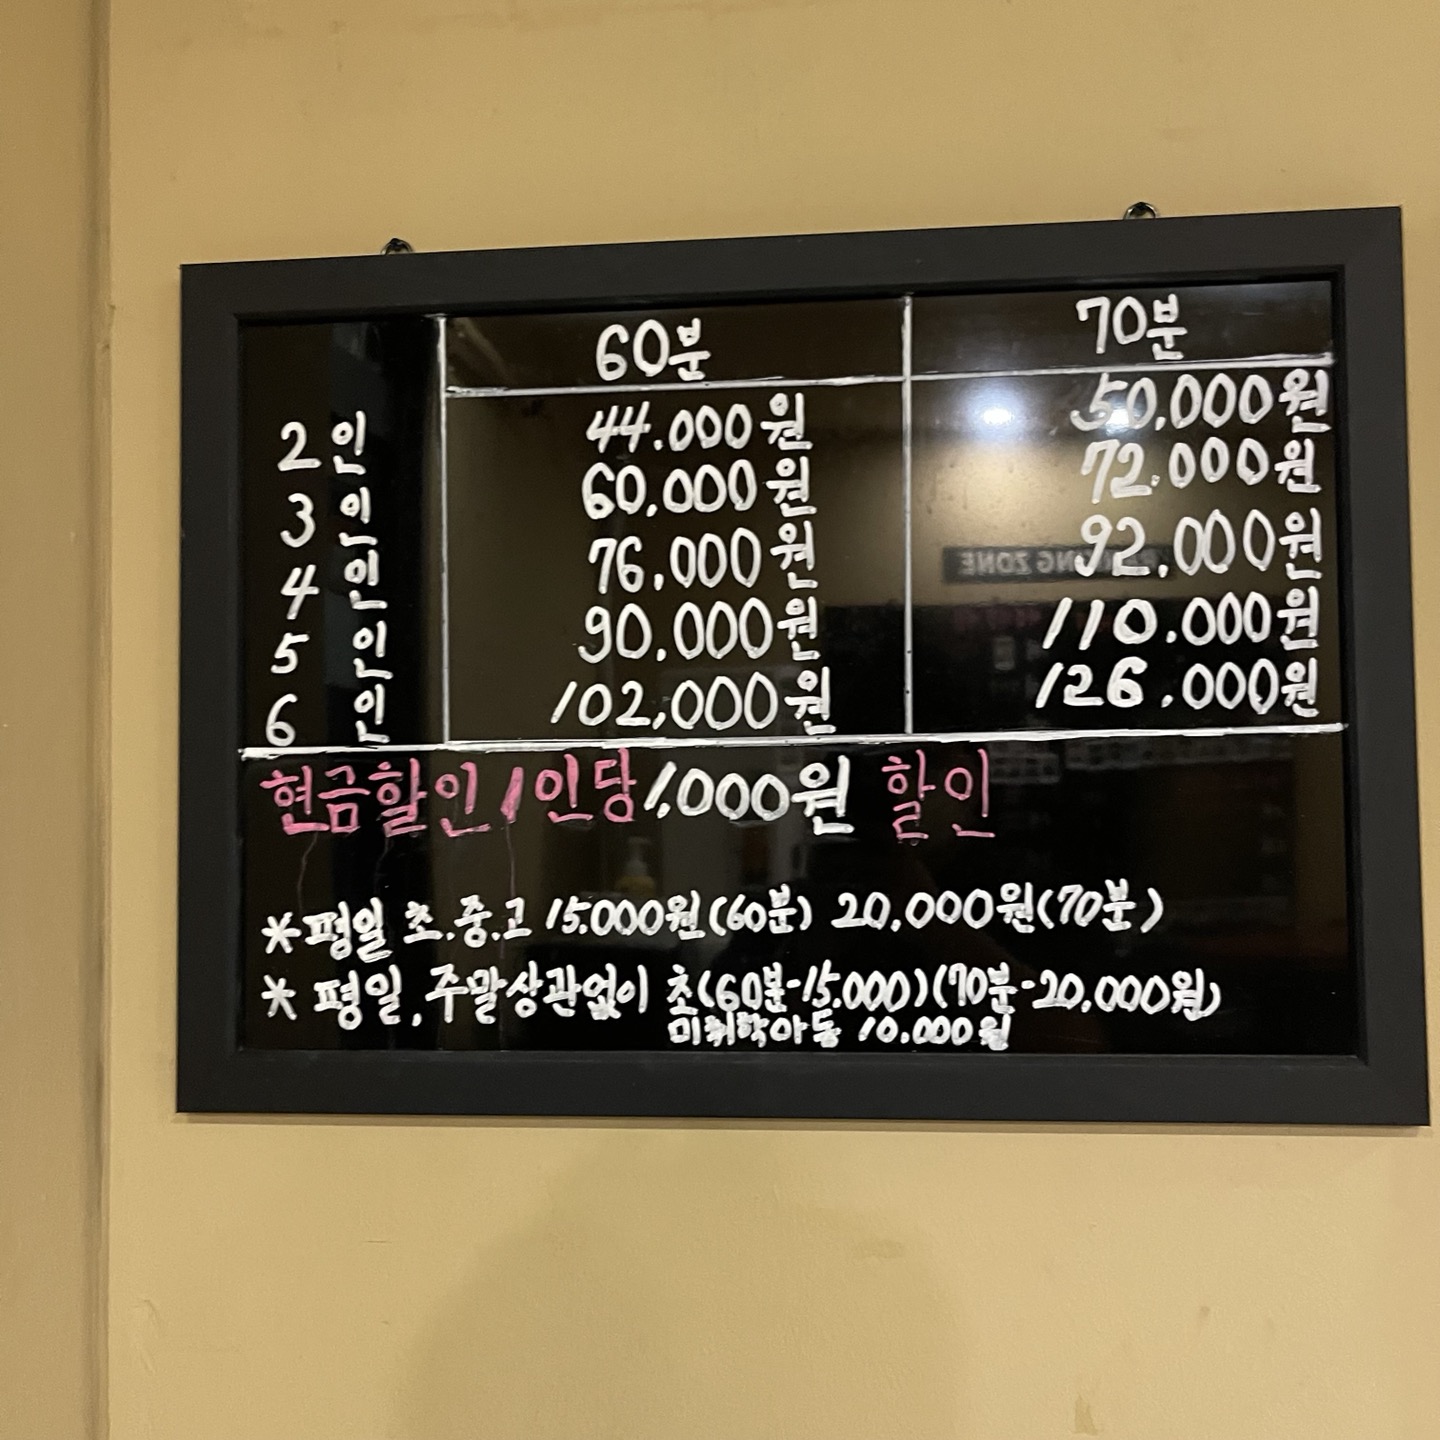 60분 70분
2인 44.000원 50,000원
3인 60,000원 72.000원
4인 76,000원 92,000원
5인 90,000원 110.000원
6인 102,000원 126.000원
현금할인 1인당 1,000원 할인
* 평일 초.중.고 15.000원(60분) 20,000원(70분)
* 평일, 주말상관없이 초(60분-15.000)(70분-20,000원)
미취학아동 10.000원
ZONE